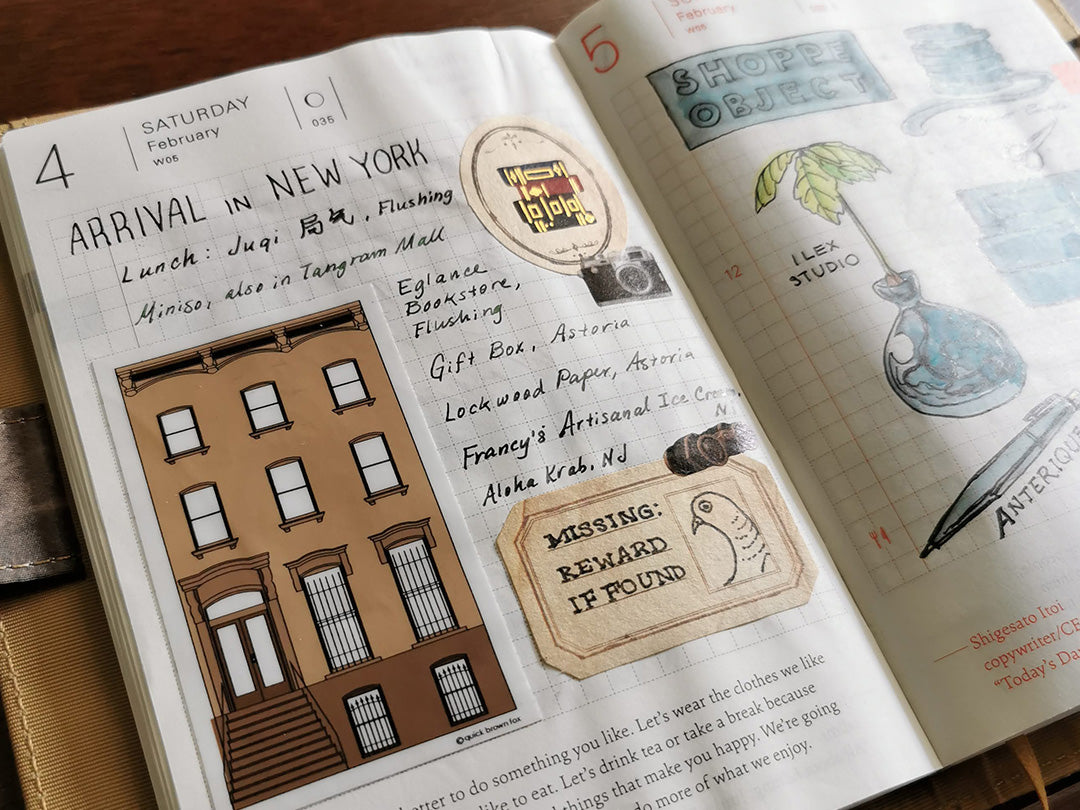 4
SATURDAY
February
W05
035
ARRIVAL IN NEW YORK
Lunch: Juqi 局气, Flushing
Miniso, also in Tangram Mall
Eglance
Bookstore,
Flushing
Gift Box, Astoria
Lockwood Paper, Astoria
Francy's Artisanal Ice Cream,
NJ
Aloha Krab, NJ
MISSING:
REWARD
IF FOUND
©quick brown fox
to do something you like. Let's wear the clothes we like
like to eat. Let's drink tea or take a break because
things that make you happy. We're going
do more of what we enjoy.
5
February
W05
SHOPPE
OBJECT
12
ILEX
STUDIO
ANTERIQUE
Shigesato Itoi
copywriter/CE
"Today's Da